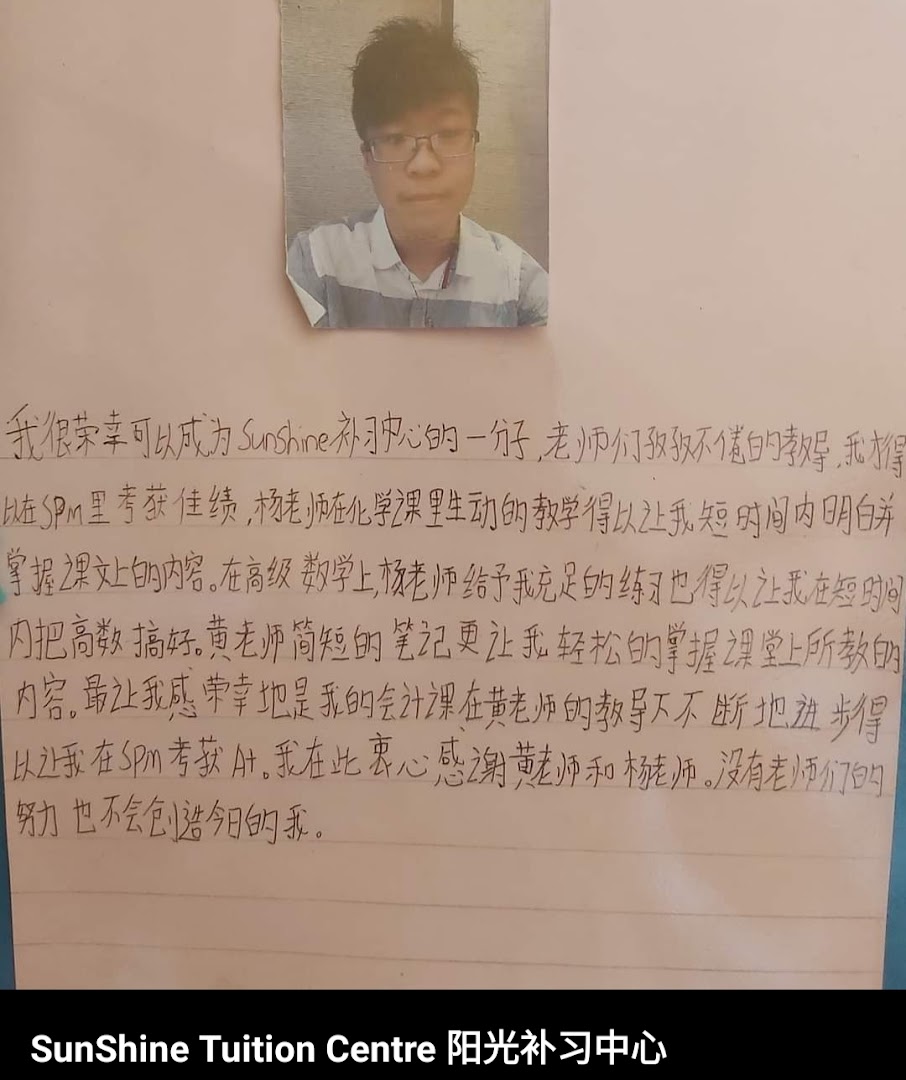 我很荣幸可以成为Sunshine补习中心的一分子,老师们孜孜不倦的教导,我才得
以在SPm里考获佳绩,杨老师在化学课里生动的教学得以让我短时间内明白并
掌握课文上的内容。在高级数学上,杨老师给予我充足的练习也得以让我在短时间
内把高数搞好。黄老师简短的笔记更让我轻松的掌握课堂上所教的
内容。最让我感荣幸地是我的会计课在黄老师的教导下不断地进步得
以让我在SPm考获A+。我在此衷心感谢黄老师和杨老师。没有老师们的
努力也不会创造今日的我。
SunShine Tuition Centre 阳光补习中心